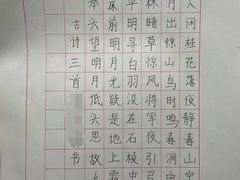 人闲桂花落夜静春山空
月出惊山鸟时鸣春涧中
林暗草惊风将军夜引弓
平明寻白羽没在石棱中
床前明月光疑是地上霜
举头望明月低头思故乡
古诗三首
书